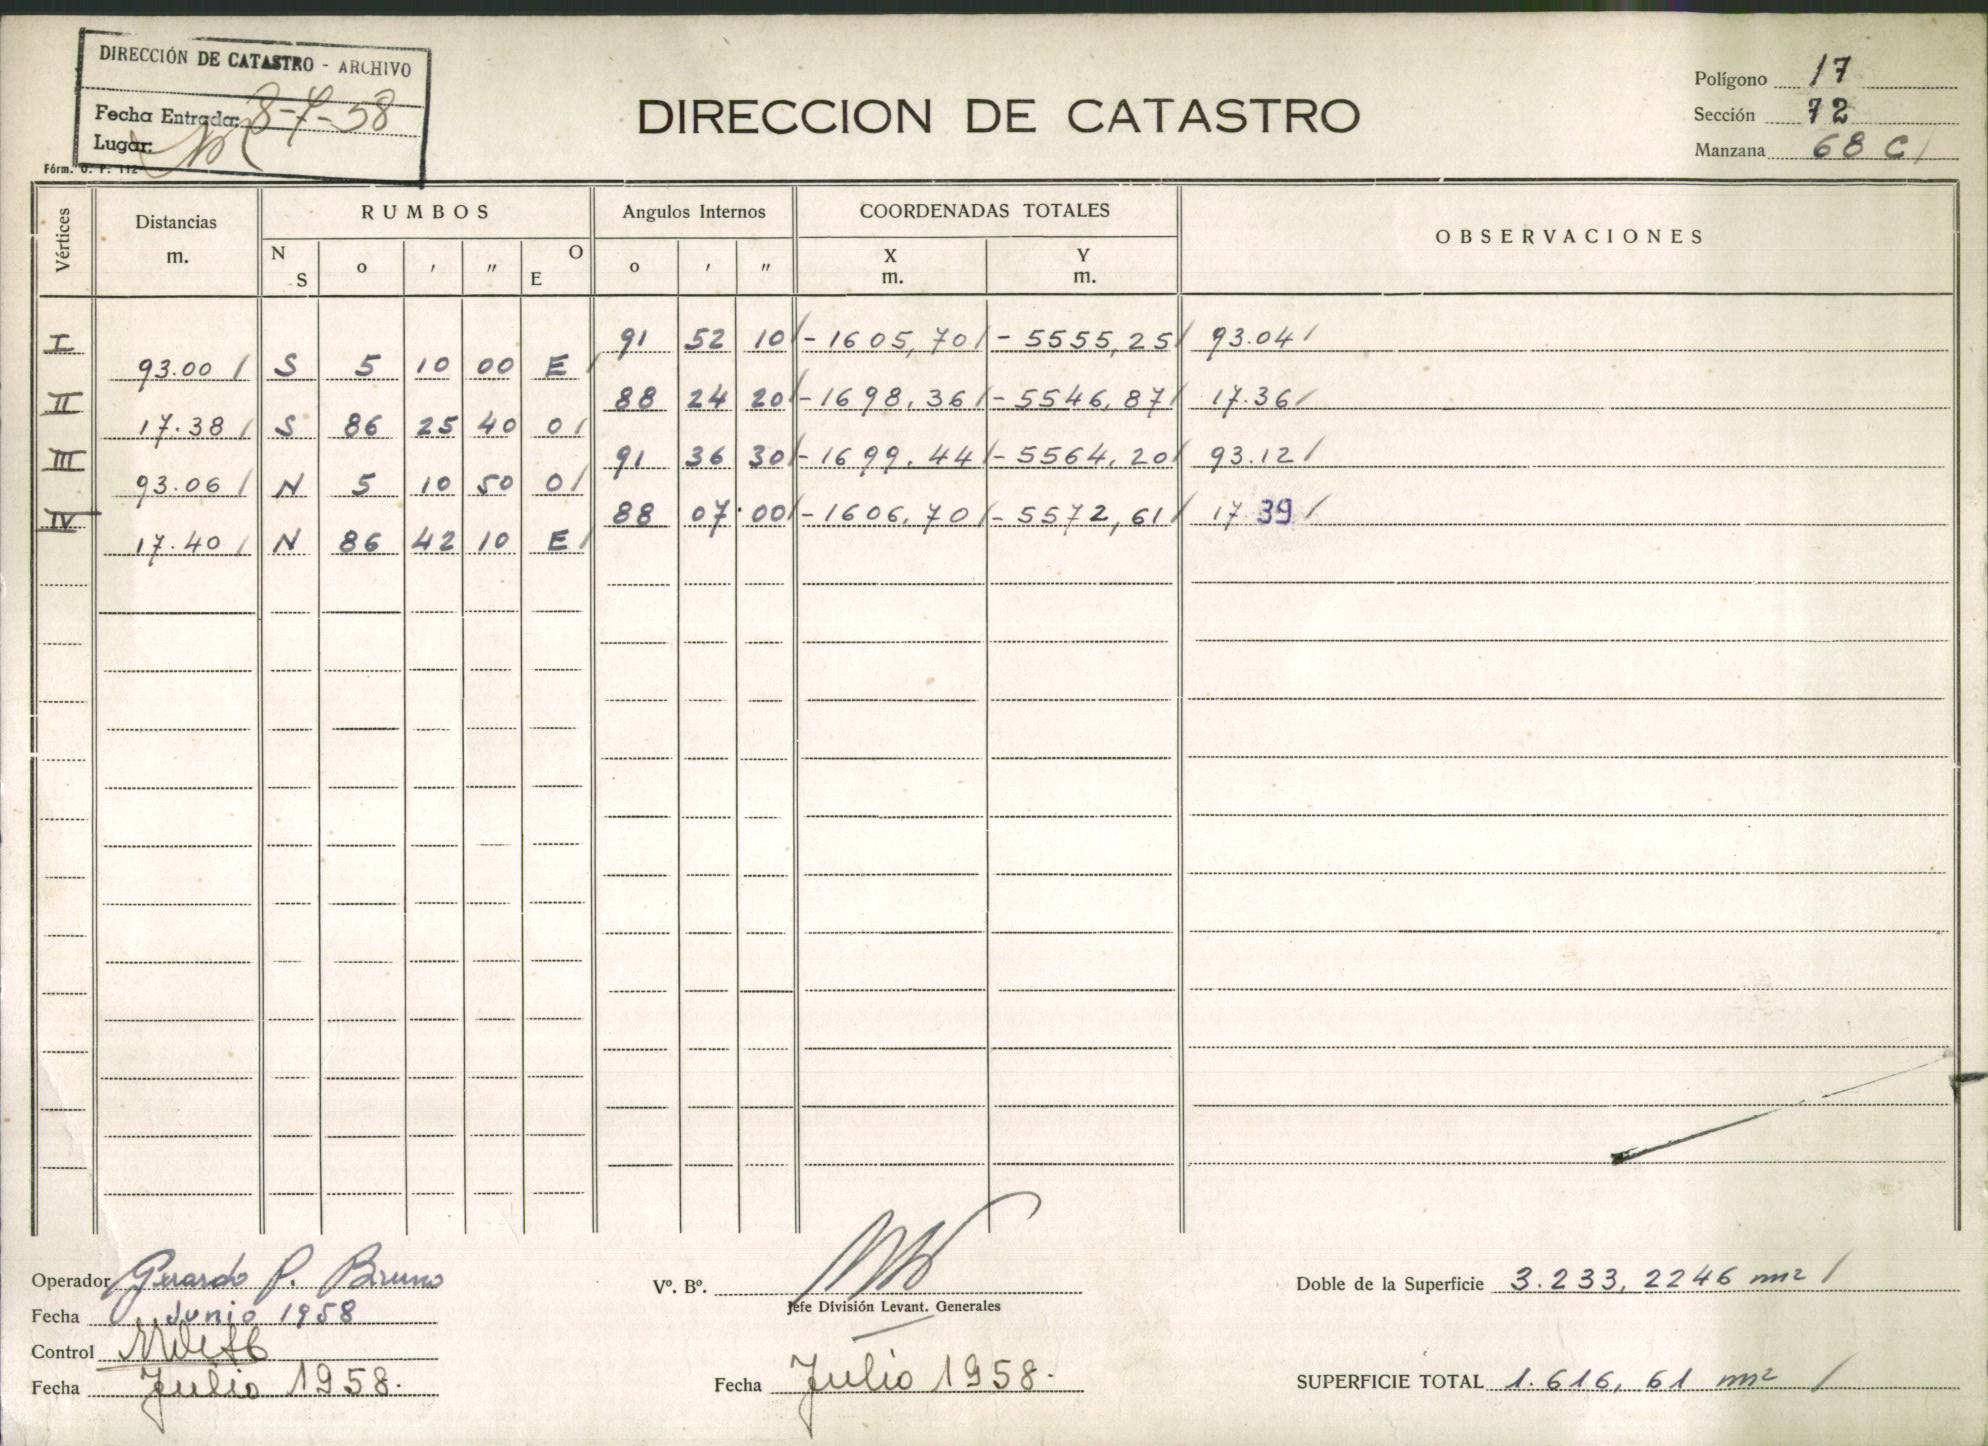 DIRECCIÓN DE CATASTRO - ARCHIVO
Fecha Entrada: 8-7-58
Lugar:
Fórm. O. P. 112
DIRECCION DE CATASTRO
Polígono 17
Sección 72
Manzana 68 C /
Vértices Distancias m. RUMBOS Angulos Internos COORDENADAS TOTALES OBSERVACIONES
N S o ' " O E o ' " X m. Y m.
I 91 52 10 / - 1605,70 / - 5555,25 / 93.04 /
93.00 / S 5 10 00 E /
II 88 24 20 / - 1698.36 / - 5546,87 / 17.36 /
17.38 / S 86 25 40 O /
III 91 36 30 / - 1699.44 / - 5564.20 / 93.12 /
93.06 / N 5 10 50 O /
IV 88 07 00 / - 1606,70 / - 5572,61 / 17 39 /
17.40 / N 86 42 10 E /
Operador Gerardo P. Bruno
Fecha Junio 1958
Control
Fecha Julio 1958.
Vº. Bº.
Jefe División Levant. Generales
Fecha Julio 1958.
Doble de la Superficie 3.233,2246 m2 /
SUPERFICIE TOTAL 1.616,61 m2 /